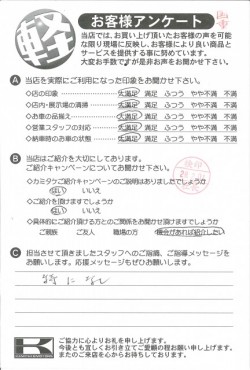 軽
お客様アンケート
当店では、お買い上げ頂いたお客様の声を可能
な限り現場に反映し、お客様により良い商品と
サービスを提供する事に努めています。
大変お手数ですが是非お声をお聞かせ下さい。
A 当店を実際にご利用になった印象をお聞かせ下さい。
◇店の印象 大満足 満足 ふつう やや不満 不満
◇店内・展示場の清掃 大満足 満足 ふつう やや不満 不満
◇お車の品揃え 大満足 満足 ふつう やや不満 不満
◇営業スタッフの対応 大満足 満足 ふつう やや不満 不満
◇納車時のお車の状態 大満足 満足 ふつう やや不満 不満
B 当店はご紹介を大切にしております。
ご紹介キャンペーンについてお聞かせ下さい。
◇カミタケご紹介キャンペーンのご説明はありましたでしょうか
はい いいえ
◇ご紹介を頂けますでしょうか
はい いいえ
◇具体的にご紹介頂ける方とのご関係をお聞かせ頂けますでしょうか
ご親族 ご友人 職場の方 機会があれば紹介したい
C 担当させて頂きましたスタッフへのご指摘、ご指導メッセージを
お願いします。応援メッセージもぜひお願いします。
特になし
K
ご協力に心よりお礼を申し上げます。
今後とも宜しくお引き立てご愛顧の程お願い申し上げます。
またのご来店を心からお待ちしております。